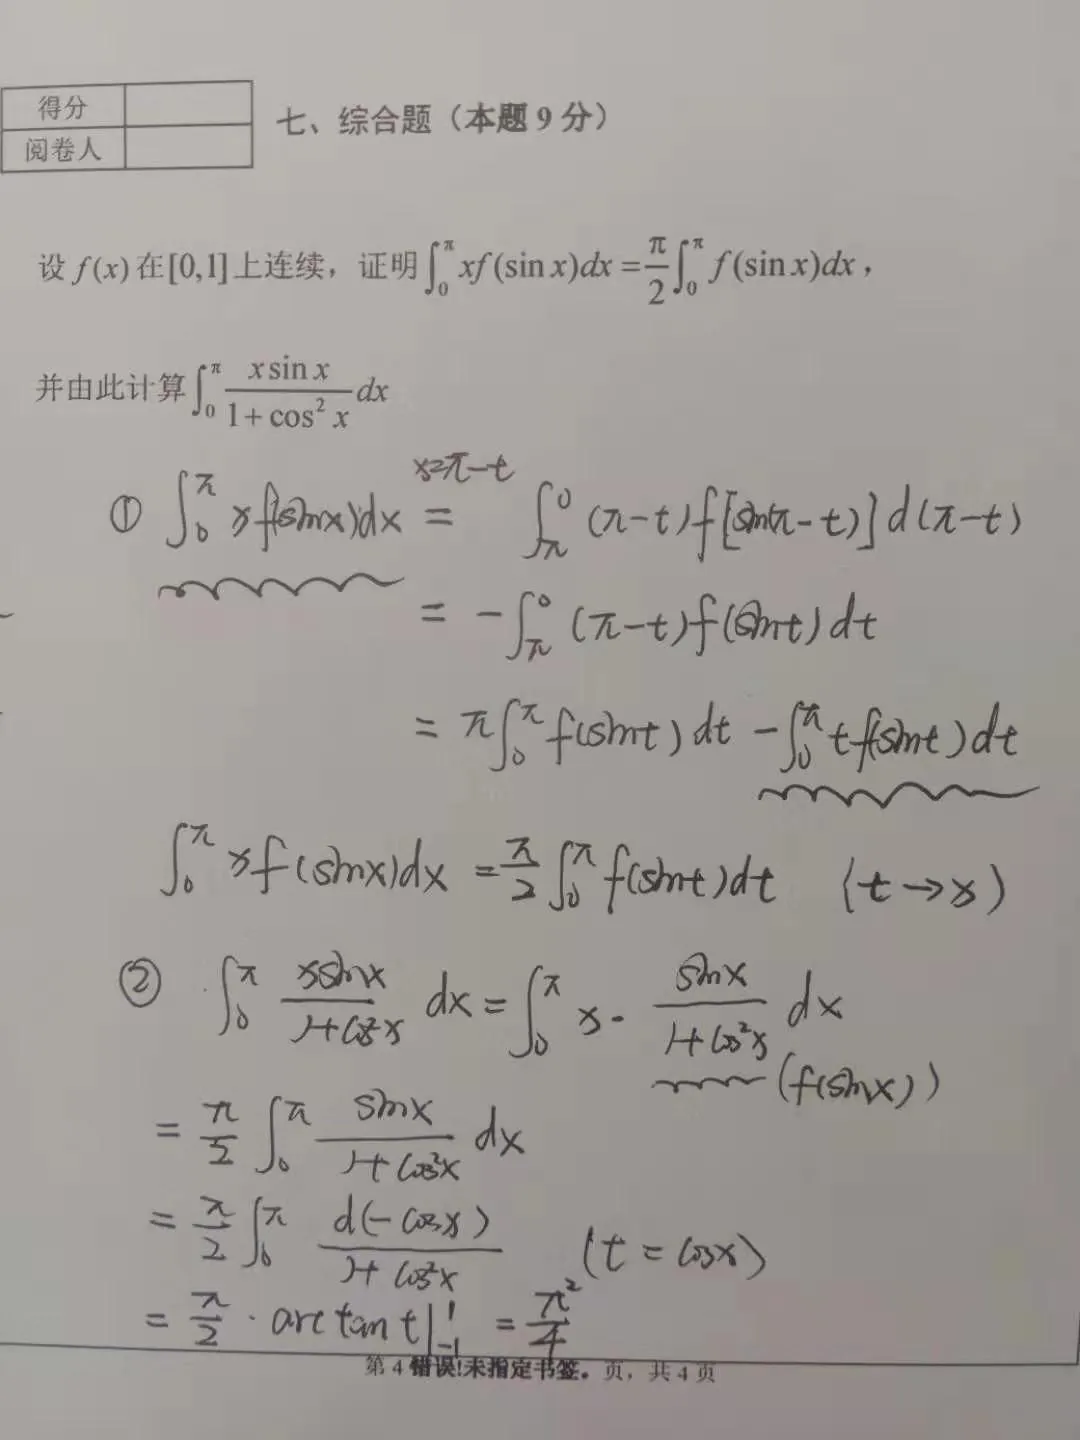 得分
阅卷人
七、综合题（本题9分）
设 f(x) 在[0,1]上连续，证明∫₀^π xf(sin x)dx = π/2 ∫₀^π f(sin x)dx，
并由此计算∫₀^π (x sin x)/(1+cos² x) dx
① ∫₀^π xf(sinx)dx =(x=π-t) ∫_π^0 (π-t)f[sin(π-t)]d(π-t)
= -∫_π^0 (π-t)f(sint)dt
= π∫₀^π f(sint)dt - ∫₀^π tf(sint)dt
∫₀^π xf(sinx)dx = π/2 ∫₀^π f(sint)dt (t→x)
② ∫₀^π (xsinx)/(1+cos²x) dx = ∫₀^π x· (sinx)/(1+cos²x) dx
(f(sinx))
= π/2 ∫₀^π (sinx)/(1+cos²x) dx
= π/2 ∫₀^π d(-cosx)/(1+cos²x) (t=cosx)
= π/2 · arctan t|₋₁^1 = π²/4
第 4 错误!未指定书签。页，共 4 页